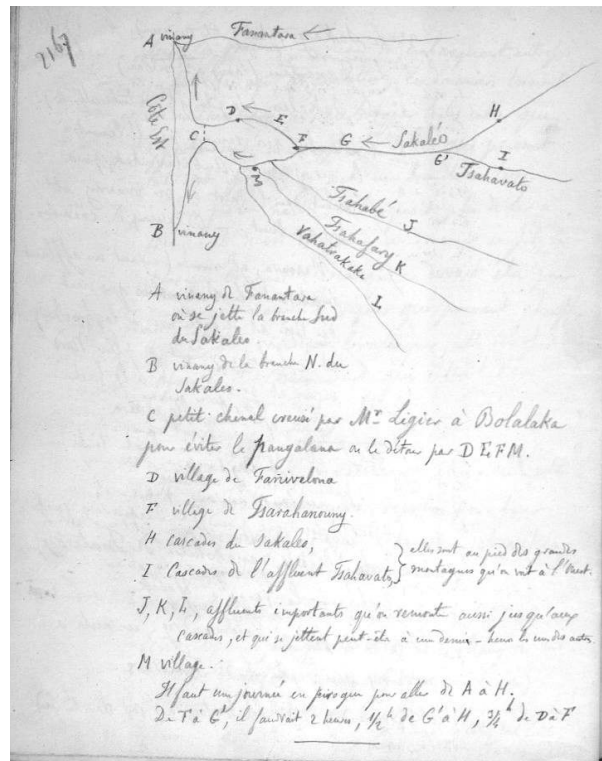 2167
A vinany
Fanantara
Côte Est
D
E
C
F
G
Sakaléo
H
G'
I
Tsahavato
M
B vinany
Tsahabé
J
Tsahafary
K
Vahatrakaka
L
A vinany de Fanantara
où se jette la branche Sud
du Sakaleo.
B vinany de la branche N. du
Sakaleo.
C petit chenal creusé par Mr Ligier à Bolalaka
pour éviter le pangalana ou le détour par DEFM.
D village de Farivelona
F village de Tsarahanouny
H cascades du Sakaleo,
I Cascades de l'affluent Tsahavato,
elles sont au pied des grandes
montagnes qu'on voit à l'Ouest.
J, K, L, affluents importants qu'on remonte aussi jusqu'aux
cascades, et qui se jettent peut-être à une demie-heure les uns des autres.
M village.
Il faut une journée en pirogue pour aller de A à H.
De F à G', il faudrait 2 heures, 1/2 h de G' à H, 3/4 h de D à F